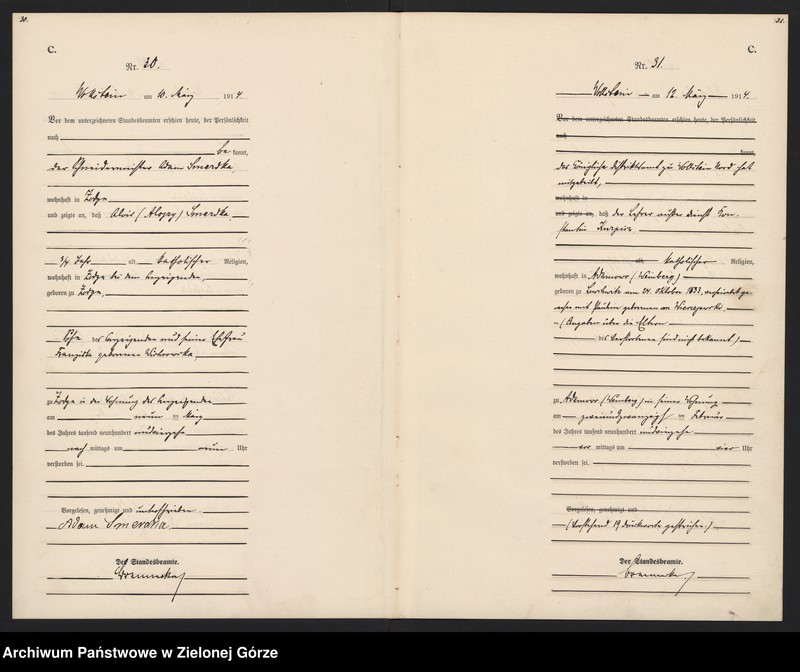 30.
C.
Nr. 30.
Wollstein am 10. März 1914
Vor dem unterzeichneten Standesbeamten erschien heute, der Persönlichkeit
nach
be kannt,
der Schneidermeister Adam Smerdka,
wohnhaft in Zodze
und zeigte an, daß Alois (Alojzy) Smerdka,
3/4 Jahr alt, katholischer Religion,
wohnhaft in Zodze bei dem Anzeigenden,
geboren zu Zodze,
Sohn des Anzeigenden und seiner Ehefrau
Franziska geborenen
zu Zodze in der Wohnung des Anzeigenden
am neun ten März
des Jahres tausend neunhundert und vierzehn
nach mittags um neun Uhr
verstorben sei.
Vorgelesen, genehmigt und unterschrieben
Adam Smerdka
Der Standesbeamte.
31.
C.
Nr. 31.
Wollstein am 12. März 1914.
Vor dem unterzeichneten Standesbeamten erschien heute, der Persönlichkeit
nach
kannt,
Das Königliche Distriktsamt zu Wollstein Nord hat
mitgeteilt,
wohnhaft in
und zeigte an, daß der Lehrer außer Dienst Kon-
stantin
alt, katholischer Religion,
wohnhaft in Adamowo (Weinberg)
geboren zu am 24. Oktober 1833, verheiratet ge-
wesen mit Pauline geborenen
(Angaben über die Eltern
des Verstorbenen sind nicht bekannt)
zu Adamowo (Weinberg) in seiner Wohnung
am zweiundzwanzigsten Februar
des Jahres tausend neunhundert und vierzehn
vor mittags um vier Uhr
verstorben sei.
Vorgelesen, genehmigt und
(Vorstehend 19 Druckworte gestrichen.)
Der Standesbeamte.
Archiwum Państwowe w Zielonej Górze